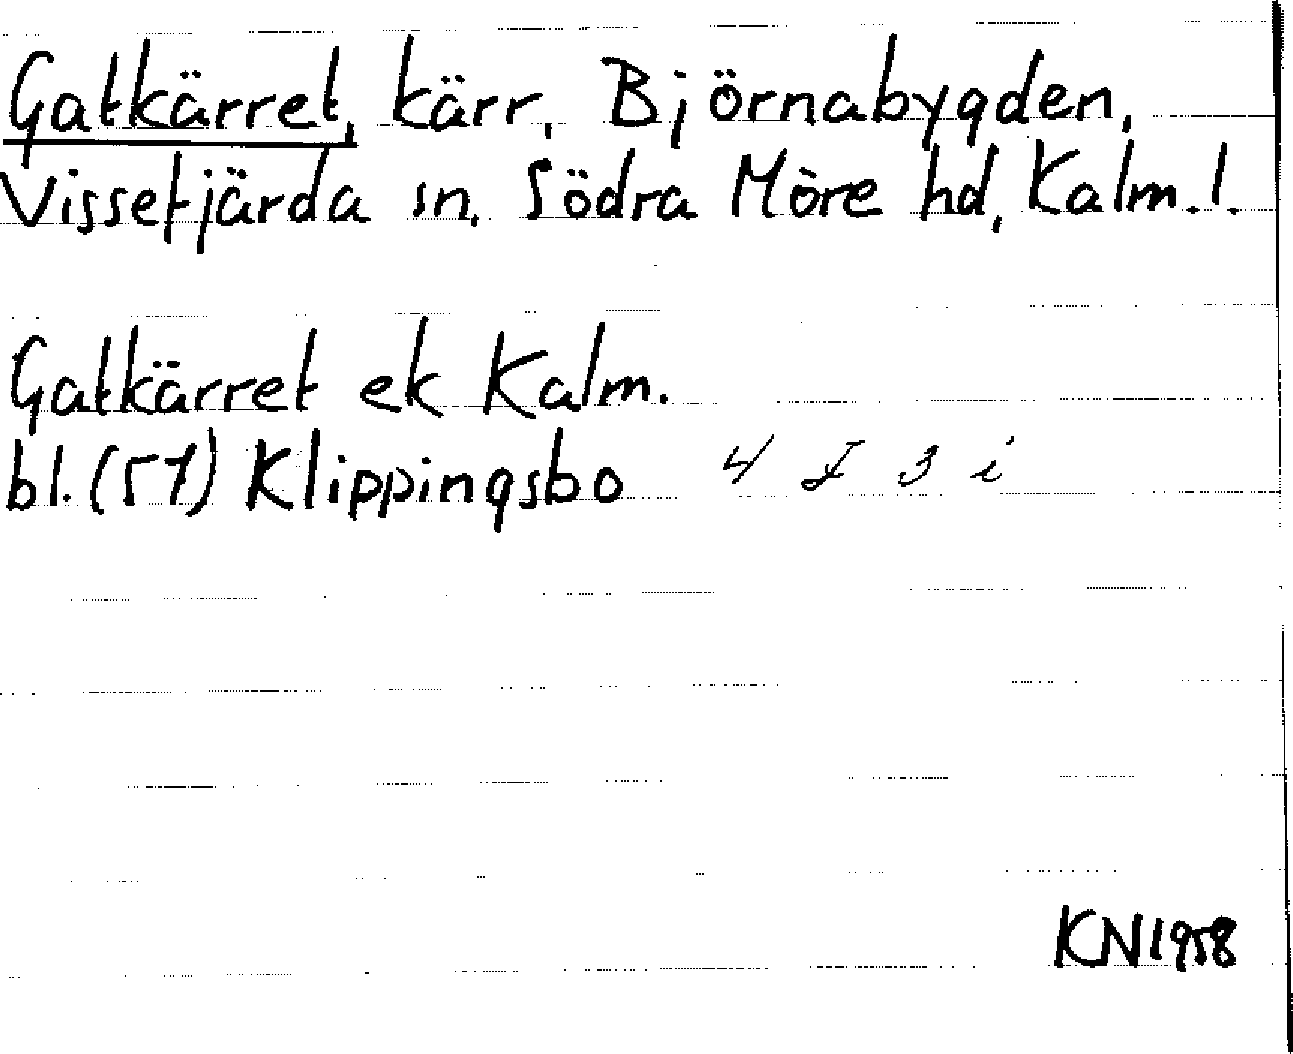 Gatkärret, kärr, Björnabygden,
Vissefjärda sn, Södra Möre hd, Kalm. l.
Gatkärret ek Kalm.
bl. (57) Klippingsbo 4 I 3 i
KN 1958